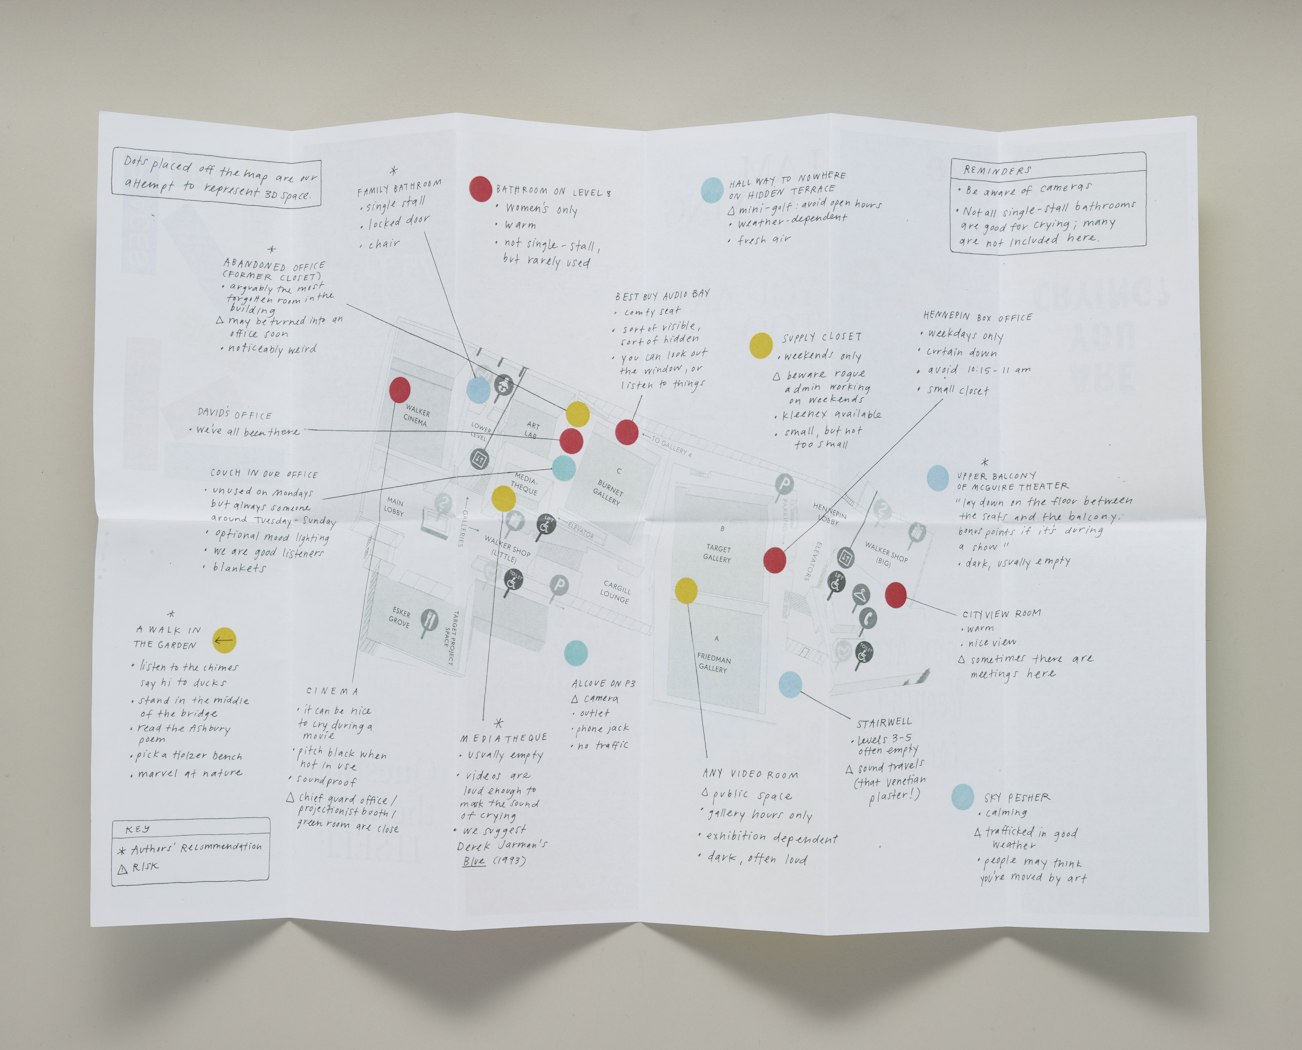 Dots placed off the map are our
attempt to represent 3D space.
*
FAMILY BATHROOM
• single stall
• locked door
• chair
BATHROOM ON LEVEL 8
• Women's only
• warm
• not single-stall,
but rarely used
HALL WAY TO NOWHERE
ON HIDDEN TERRACE
△ mini-golf: avoid open hours
• weather-dependent
• fresh air
REMINDERS
• Be aware of cameras
• Not all single-stall bathrooms
are good for crying; many
are not included here.
*
ABANDONED OFFICE
(FORMER CLOSET)
• arguably the most
forgotten room in the
building
△ may be turned into an
office soon
• noticeably weird
BEST BUY AUDIO BAY
• comfy seat
• sort of visible,
sort of hidden
• you can look out
the window, or
listen to things
SUPPLY CLOSET
• weekends only
△ beware rogue
admin working
on weekends
• kleenex available
• small, but not
too small
HENNEPIN BOX OFFICE
• weekdays only
• curtain down
• avoid 10:15-11 am
• small closet
DAVID'S OFFICE
• we've all been there
COUCH IN OUR OFFICE
• unused on Mondays
but always someone
around Tuesday-Sunday
• optional mood lighting
• we are good listeners
• blankets
*
UPPER BALCONY
OF MCGUIRE THEATER
"lay down on the floor between
the seats and the balcony.
bonus points if it's during
a show"
• dark, usually empty
WALKER
CINEMA
LOWER
LEVEL
ART
LAB
TO GALLERY 4
C
BURNET
GALLERY
MEDIA-
THEQUE
MAIN
LOBBY
GALLERIES
ELEVATOR
WALKER SHOP
(LITTLE)
CARGILL
LOUNGE
ESKER
GROVE
TARGET PROJECT
SPACE
B
TARGET
GALLERY
A
FRIEDMAN
GALLERY
HENNEPIN
LOBBY
ELEVATORS
WALKER SHOP
(BIG)
P
P
CITYVIEW ROOM
• warm
• nice view
△ sometimes there are
meetings here
*
A WALK IN
THE GARDEN
←
• listen to the chimes
say hi to ducks
• stand in the middle
of the bridge
• read the Ashbury
poem
• pick a Holzer bench
• marvel at nature
CINEMA
• it can be nice
to cry during a
movie
• pitch black when
not in use
• soundproof
△ chief guard office/
projectionist booth/
green room are close
*
MEDIATHEQUE
• usually empty
• videos are
loud enough to
mask the sound
of crying
• we suggest
Derek Jarman's
Blue (1993)
ALCOVE ON P3
△ camera
• outlet
• phone jack
• no traffic
ANY VIDEO ROOM
△ public space
• gallery hours only
• exhibition dependent
• dark, often loud
STAIRWELL
• levels 3-5
often empty
△ sound travels
(that venetian
plaster!)
SKY PESHER
• calming
△ trafficked in good
weather
• people may think
you're moved by art
KEY
* Authors' Recommendation
△ RISK